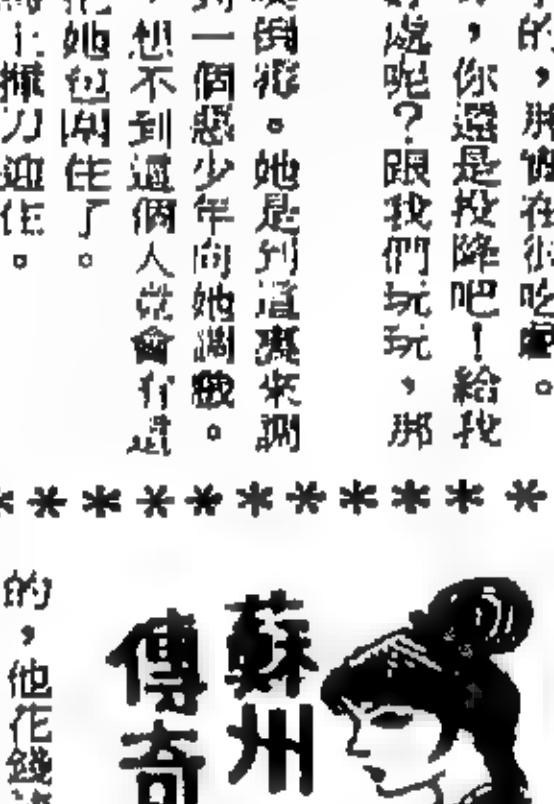 的，那實在很吃虧。
，你還是投降吧！給我
處呢？跟我們玩玩，那
倒霉。她是到這裏來調
到一個惡少年向她調戲。
，想不到這個人竟會有這
她包圍住了。
上揮刀迎住。
蘇州
傳奇
的，他花錢